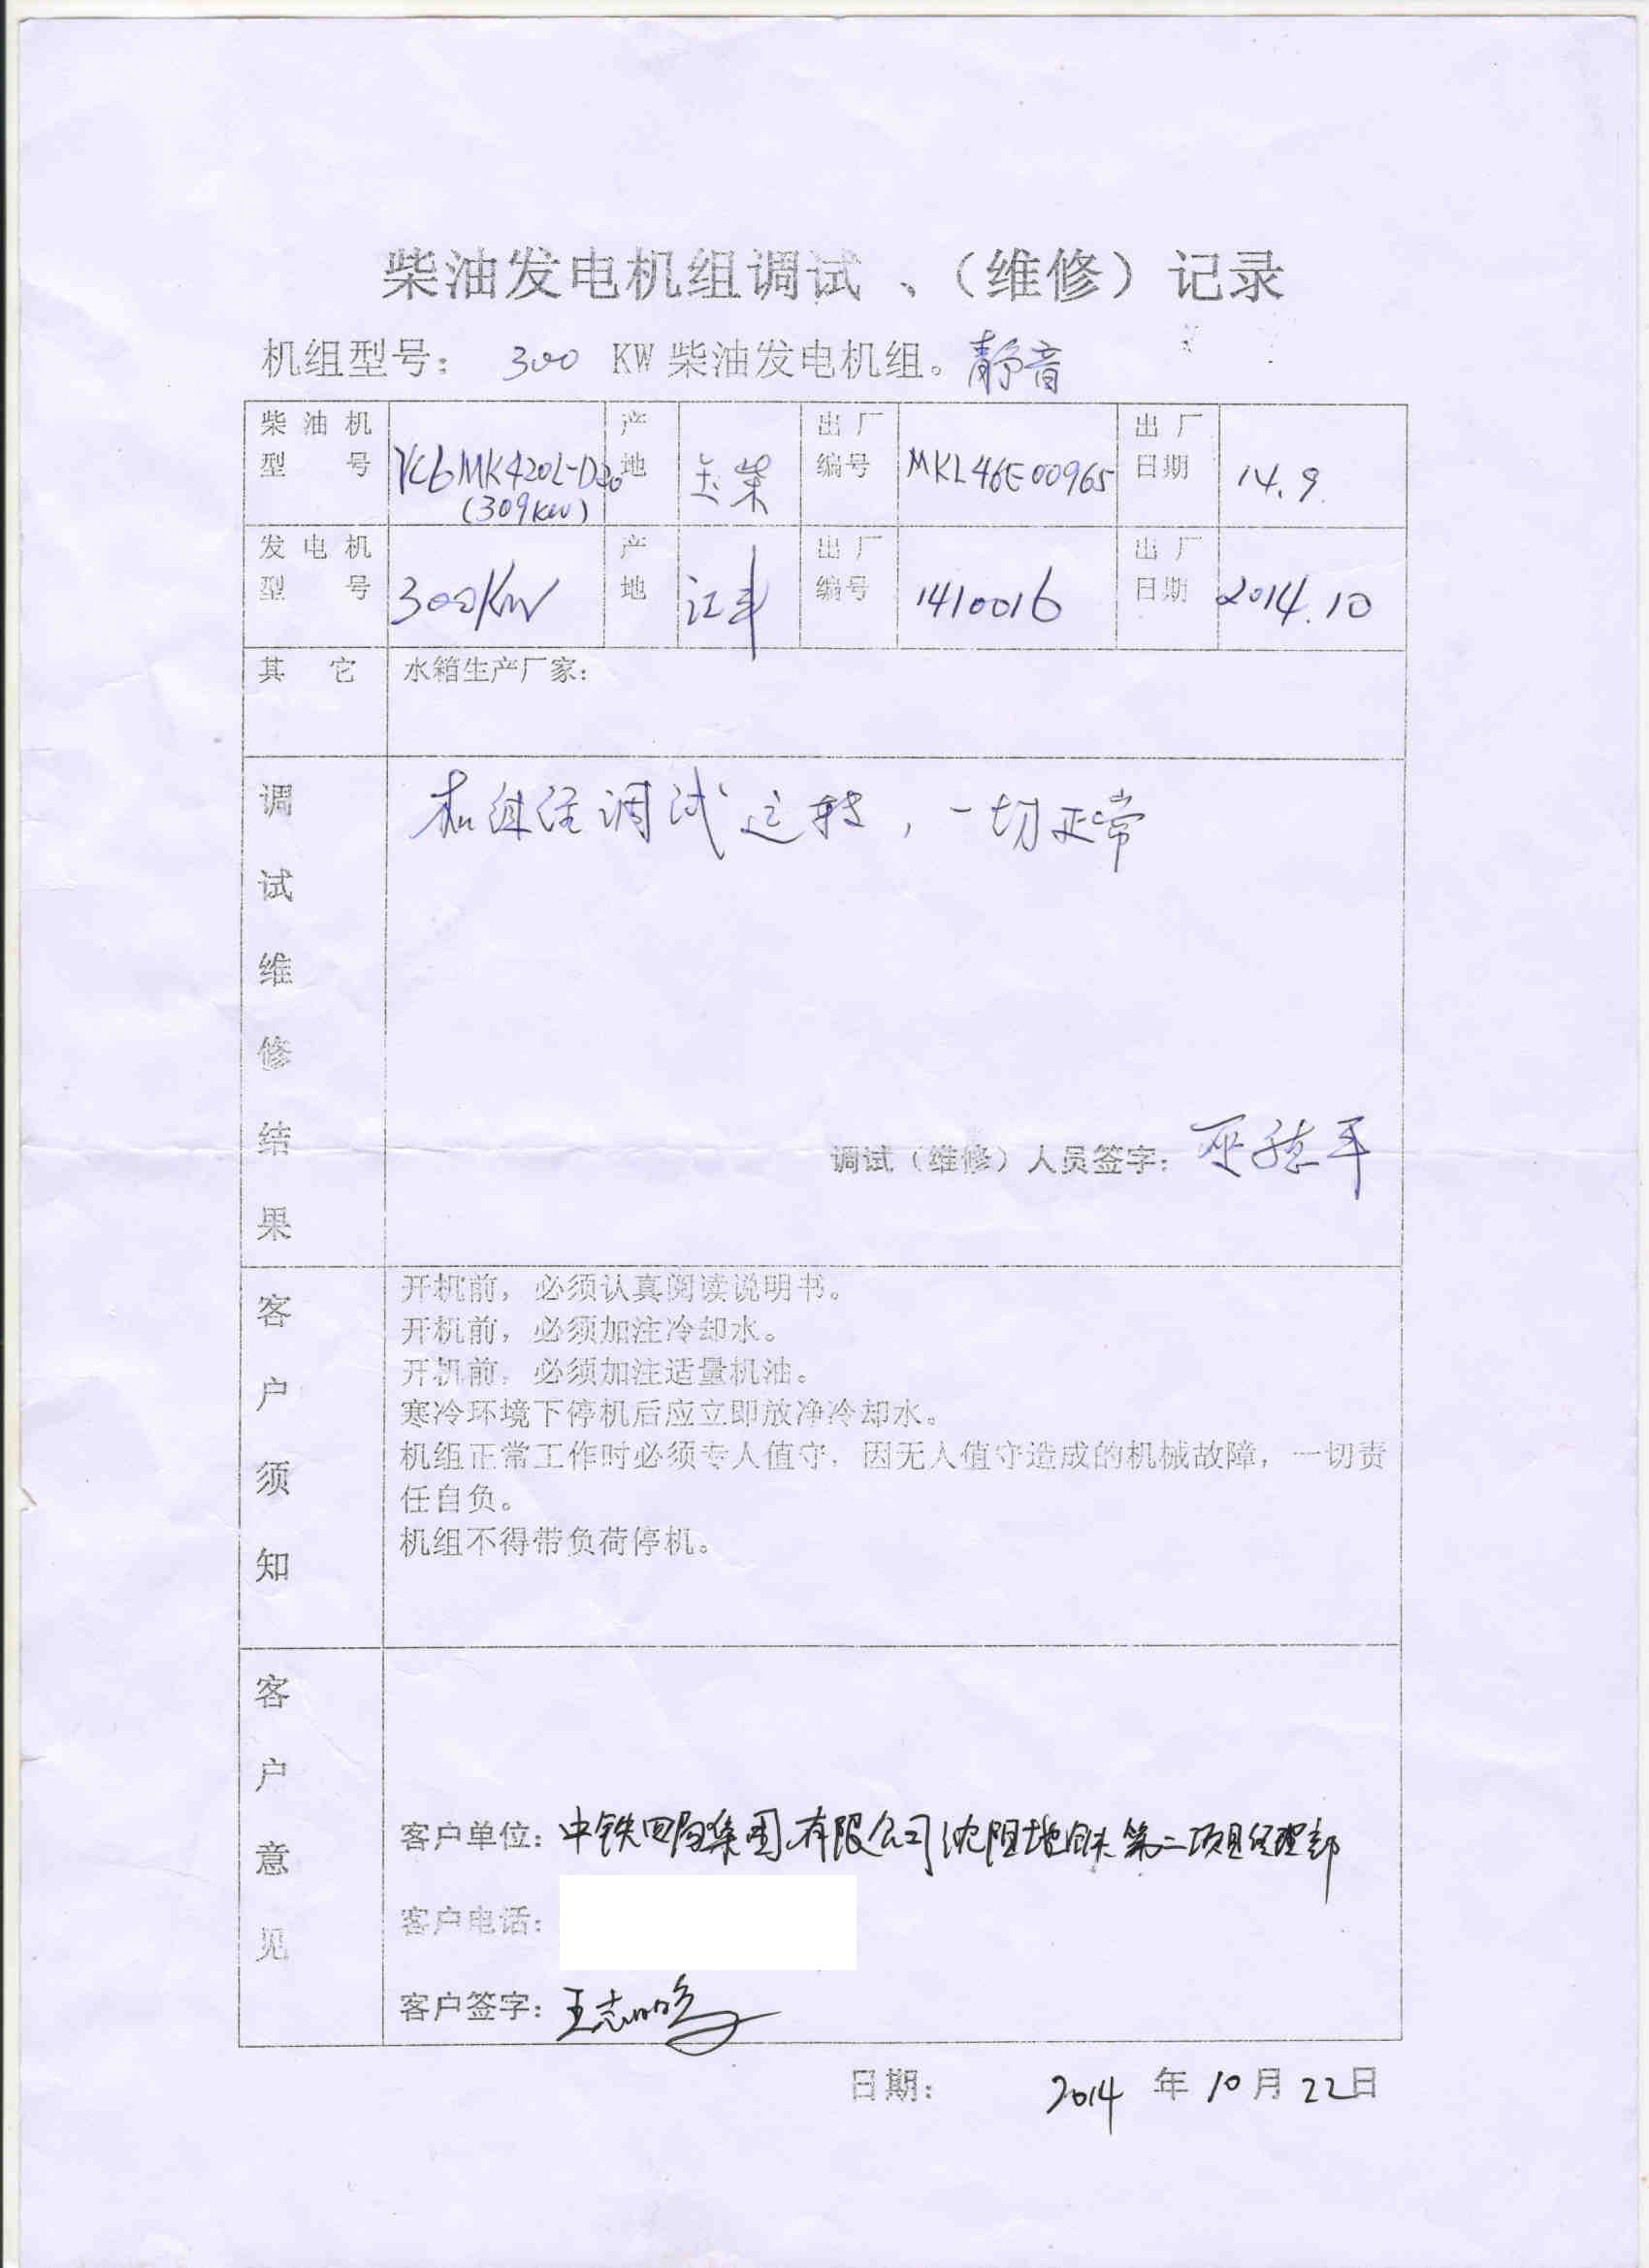 柴油发电机组调试、（维修）记录
机组型号： 300 KW柴油发电机组。静音
柴油机型号 YC6MK420L-D20 (309KW) 产地 玉柴 出厂编号 MKL46E00965 出厂日期 14.9.
发电机型号 300KW 产地 江丰 出厂编号 1410016 出厂日期 2014.10
其它 水箱生产厂家：
调试维修结果
机组经调试运转，一切正常
调试（维修）人员签字：
客户须知
开机前，必须认真阅读说明书。
开机前，必须加注冷却水。
开机前，必须加注适量机油。
寒冷环境下停机后应立即放净冷却水。
机组正常工作时必须专人值守，因无人值守造成的机械故障，一切责
任自负。
机组不得带负荷停机。
客户意见
客户单位：中铁四局集团有限公司沈阳地铁第二项目经理部
客户电话：
客户签字：王志鸣
日期： 2014 年 10 月 22 日